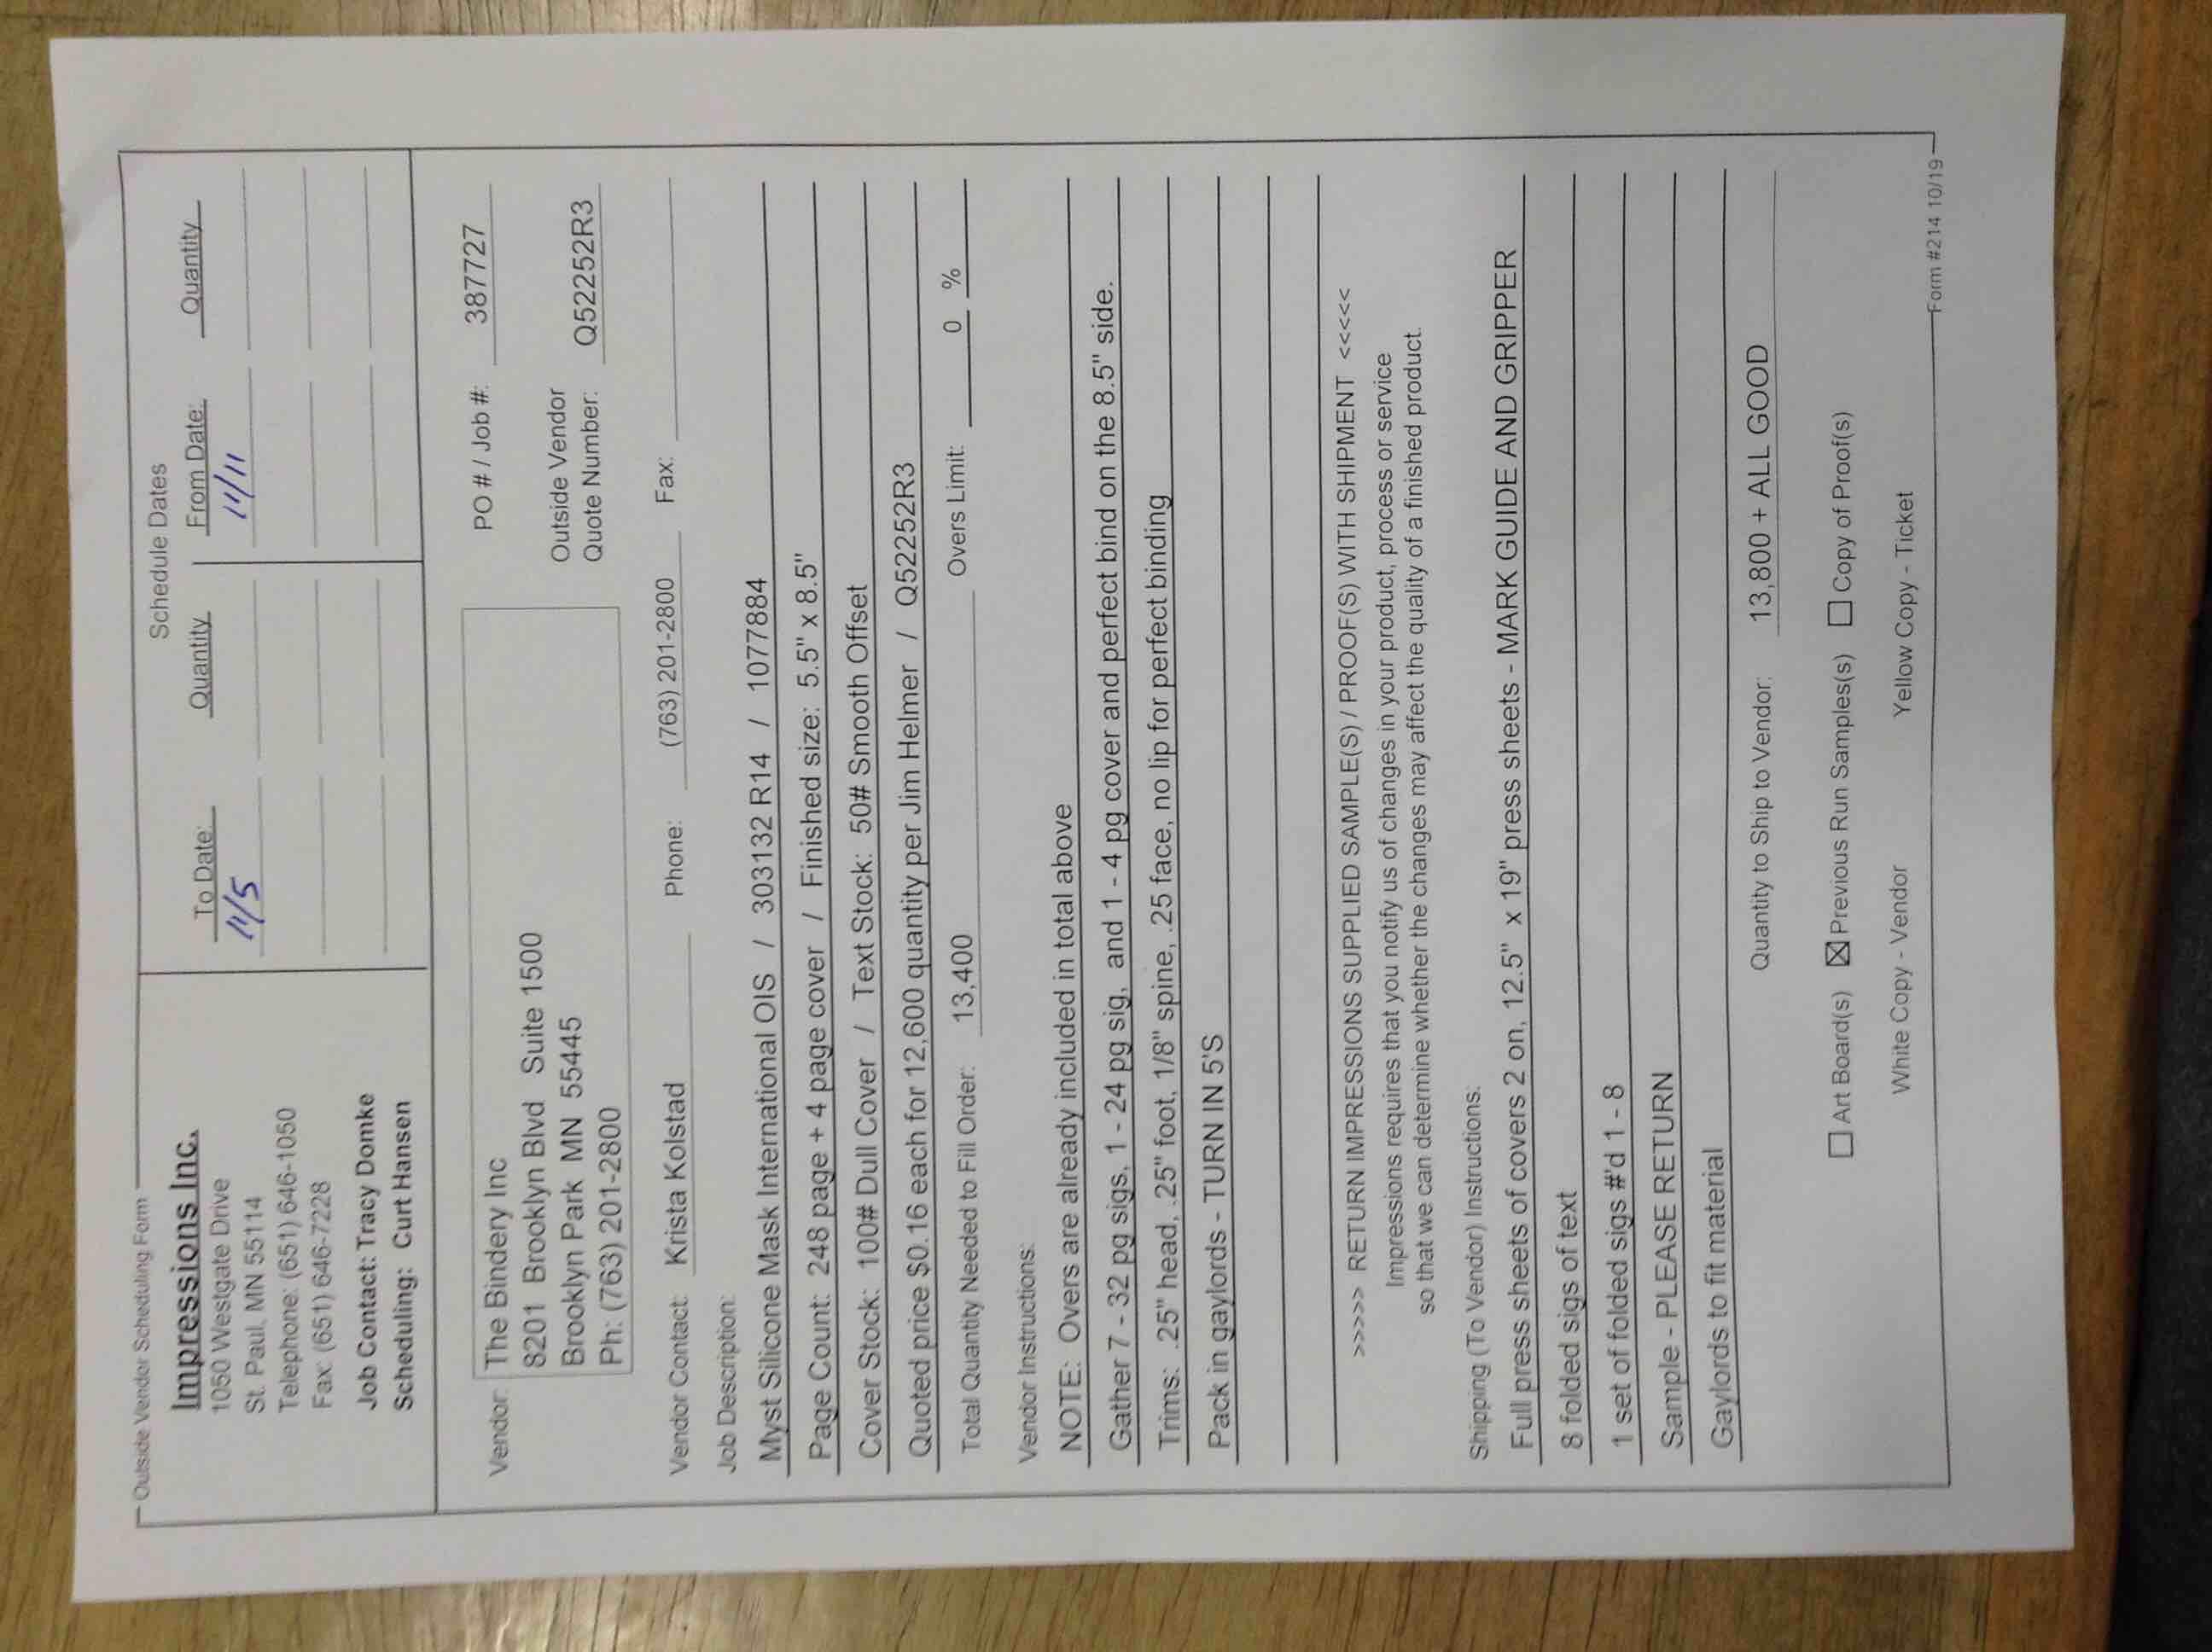 Outside Vendor Scheduling Form
Impressions Inc.
1050 Westgate Drive
St. Paul, MN 55114
Telephone: (651) 646-1050
Fax: (651) 646-7228
Job Contact: Tracy Domke
Scheduling: Curt Hansen
Schedule Dates
To Date: Quantity From Date: Quantity
11/5 11/11
Vendor: The Bindery Inc
8201 Brooklyn Blvd Suite 1500
Brooklyn Park MN 55445
Ph: (763) 201-2800
PO # / Job #: 387727
Outside Vendor
Quote Number: Q52252R3
Vendor Contact: Krista Kolstad Phone: (763) 201-2800 Fax:
Job Description:
Myst Silicone Mask International OIS / 303132 R14 / 1077884
Page Count: 248 page + 4 page cover / Finished size: 5.5" x 8.5"
Cover Stock: 100# Dull Cover / Text Stock: 50# Smooth Offset
Quoted price $0.16 each for 12,600 quantity per Jim Helmer / Q52252R3
Total Quantity Needed to Fill Order: 13,400 Overs Limit: 0 %
Vendor Instructions:
NOTE: Overs are already included in total above
Gather 7 - 32 pg sigs, 1 - 24 pg sig, and 1 - 4 pg cover and perfect bind on the 8.5" side.
Trims: .25" head, .25" foot, 1/8" spine, .25 face, no lip for perfect binding
Pack in gaylords - TURN IN 5'S
>>>>> RETURN IMPRESSIONS SUPPLIED SAMPLE(S) / PROOF(S) WITH SHIPMENT <<<<<
Impressions requires that you notify us of changes in your product, process or service
so that we can determine whether the changes may affect the quality of a finished product.
Shipping (To Vendor) Instructions:
Full press sheets of covers 2 on, 12.5" x 19" press sheets - MARK GUIDE AND GRIPPER
8 folded sigs of text
1 set of folded sigs #'d 1 - 8
Sample - PLEASE RETURN
Gaylords to fit material
Quantity to Ship to Vendor: 13,800 + ALL GOOD
☐ Art Board(s) ☒ Previous Run Samples(s) ☐ Copy of Proof(s)
White Copy - Vendor Yellow Copy - Ticket
Form #214 10/19